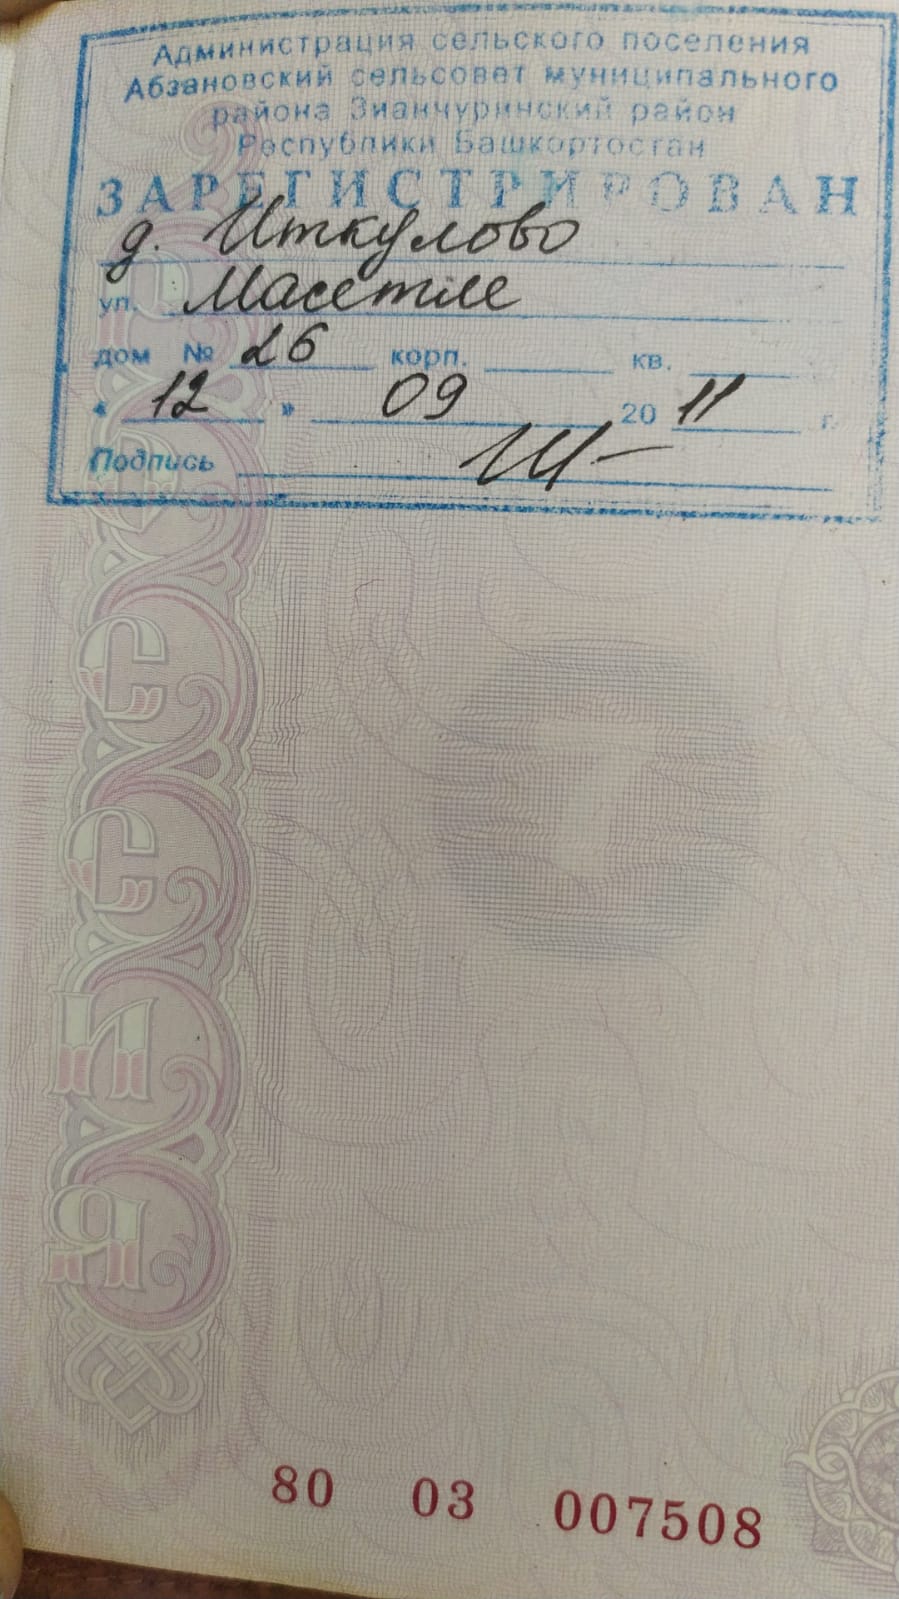 Администрация сельского поселения
Абзановский сельсовет муниципального
района Зианчуринский район
Республики Башкортостан
ЗАРЕГИСТРИРОВАН
д. Иткулово
ул. Масетле
дом № 26 корп. кв.
« 12 » 09 20 11 г.
Подпись
РОССИЯ
80 03 007508